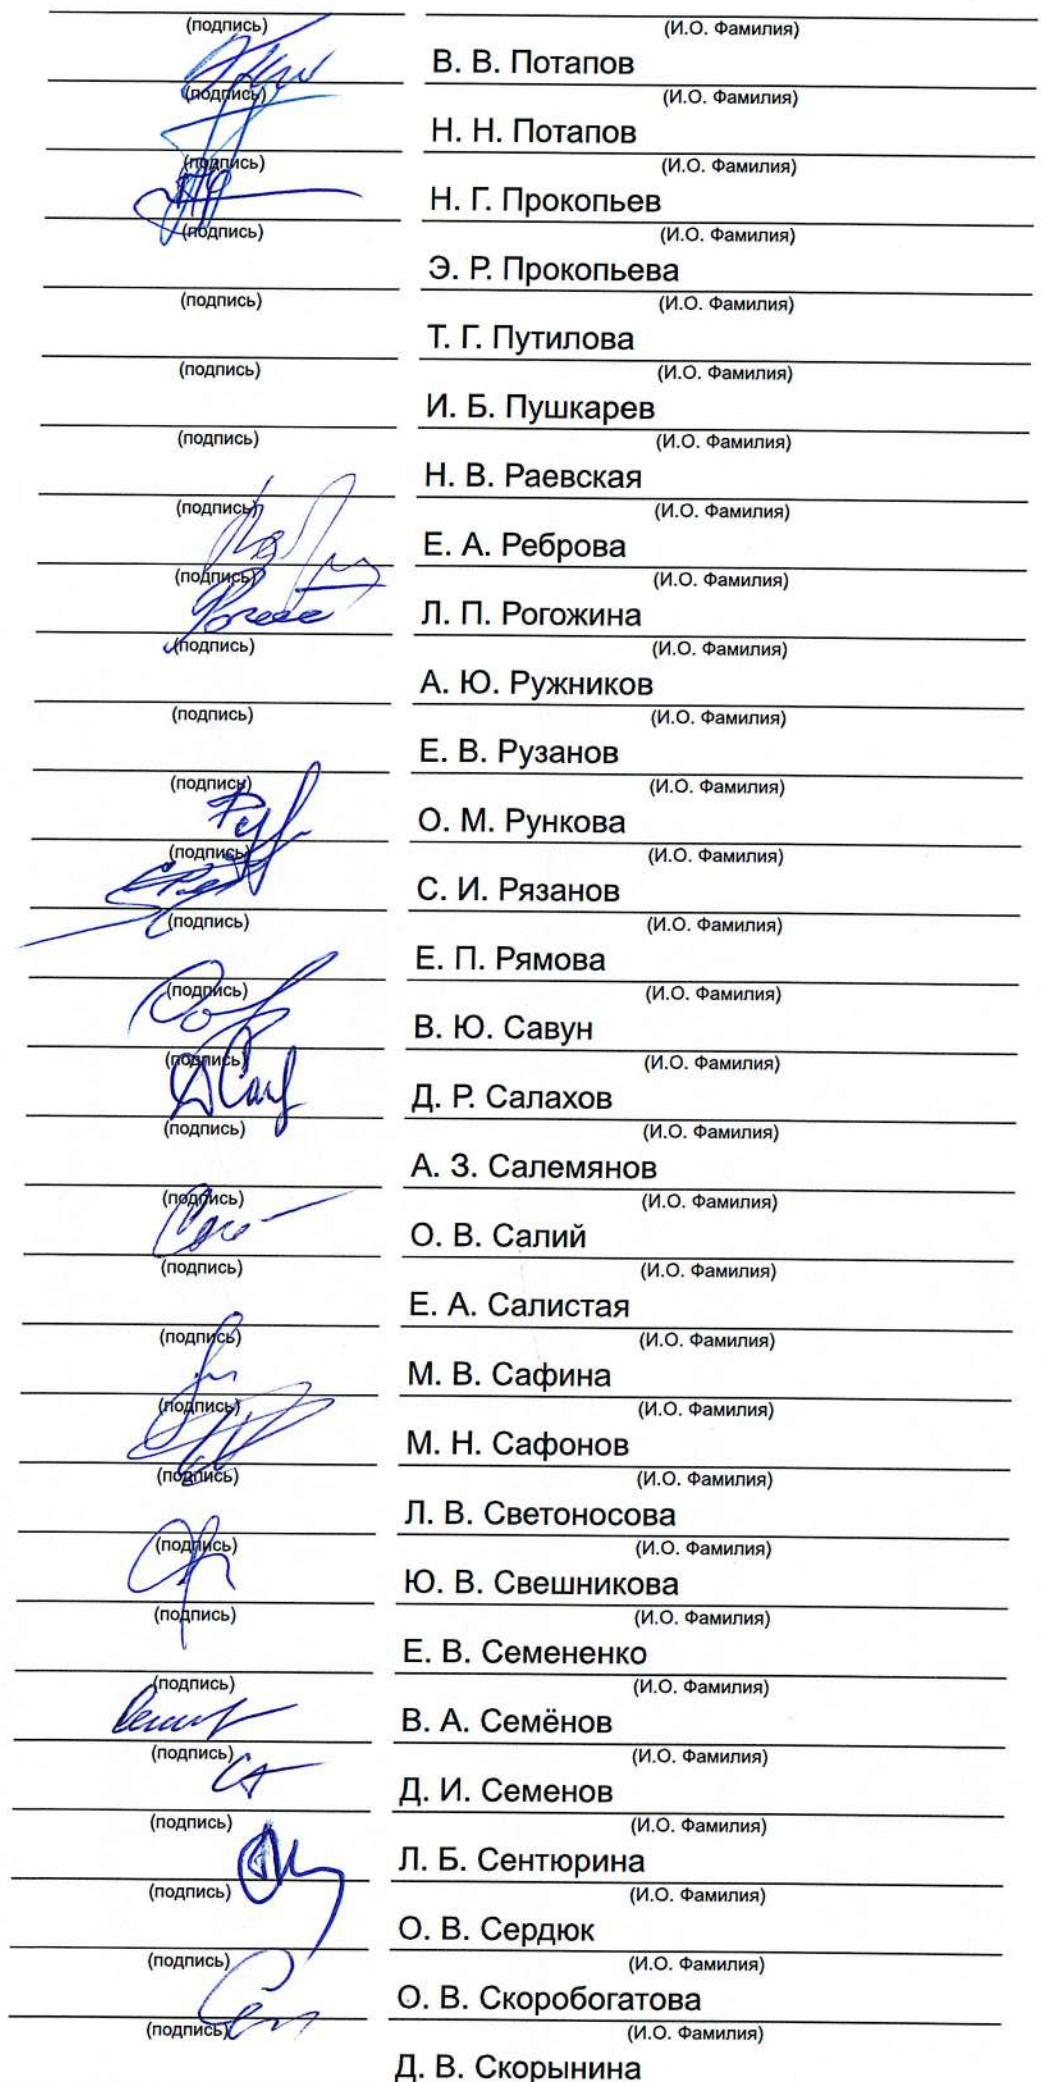 (подпись) (И.О. Фамилия)
В. В. Потапов
(подпись) (И.О. Фамилия)
Н. Н. Потапов
(подпись) (И.О. Фамилия)
Н. Г. Прокопьев
(подпись) (И.О. Фамилия)
Э. Р. Прокопьева
(подпись) (И.О. Фамилия)
Т. Г. Путилова
(подпись) (И.О. Фамилия)
И. Б. Пушкарев
(подпись) (И.О. Фамилия)
Н. В. Раевская
(подпись) (И.О. Фамилия)
Е. А. Реброва
(подпись) (И.О. Фамилия)
Л. П. Рогожина
(подпись) (И.О. Фамилия)
А. Ю. Ружников
(подпись) (И.О. Фамилия)
Е. В. Рузанов
(подпись) (И.О. Фамилия)
О. М. Рункова
(подпись) (И.О. Фамилия)
С. И. Рязанов
(подпись) (И.О. Фамилия)
Е. П. Рямова
(подпись) (И.О. Фамилия)
В. Ю. Савун
(подпись) (И.О. Фамилия)
Д. Р. Салахов
(подпись) (И.О. Фамилия)
А. З. Салемянов
(подпись) (И.О. Фамилия)
О. В. Салий
(подпись) (И.О. Фамилия)
Е. А. Салистая
(подпись) (И.О. Фамилия)
М. В. Сафина
(подпись) (И.О. Фамилия)
М. Н. Сафонов
(подпись) (И.О. Фамилия)
Л. В. Светоносова
(подпись) (И.О. Фамилия)
Ю. В. Свешникова
(подпись) (И.О. Фамилия)
Е. В. Семененко
(подпись) (И.О. Фамилия)
В. А. Семёнов
(подпись) (И.О. Фамилия)
Д. И. Семенов
(подпись) (И.О. Фамилия)
Л. Б. Сентюрина
(подпись) (И.О. Фамилия)
О. В. Сердюк
(подпись) (И.О. Фамилия)
О. В. Скоробогатова
(подпись) (И.О. Фамилия)
Д. В. Скорынина